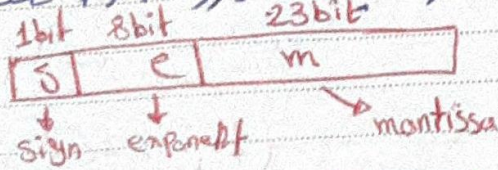 1bit 8bit 23bit
S e m
sign exponent mantissa